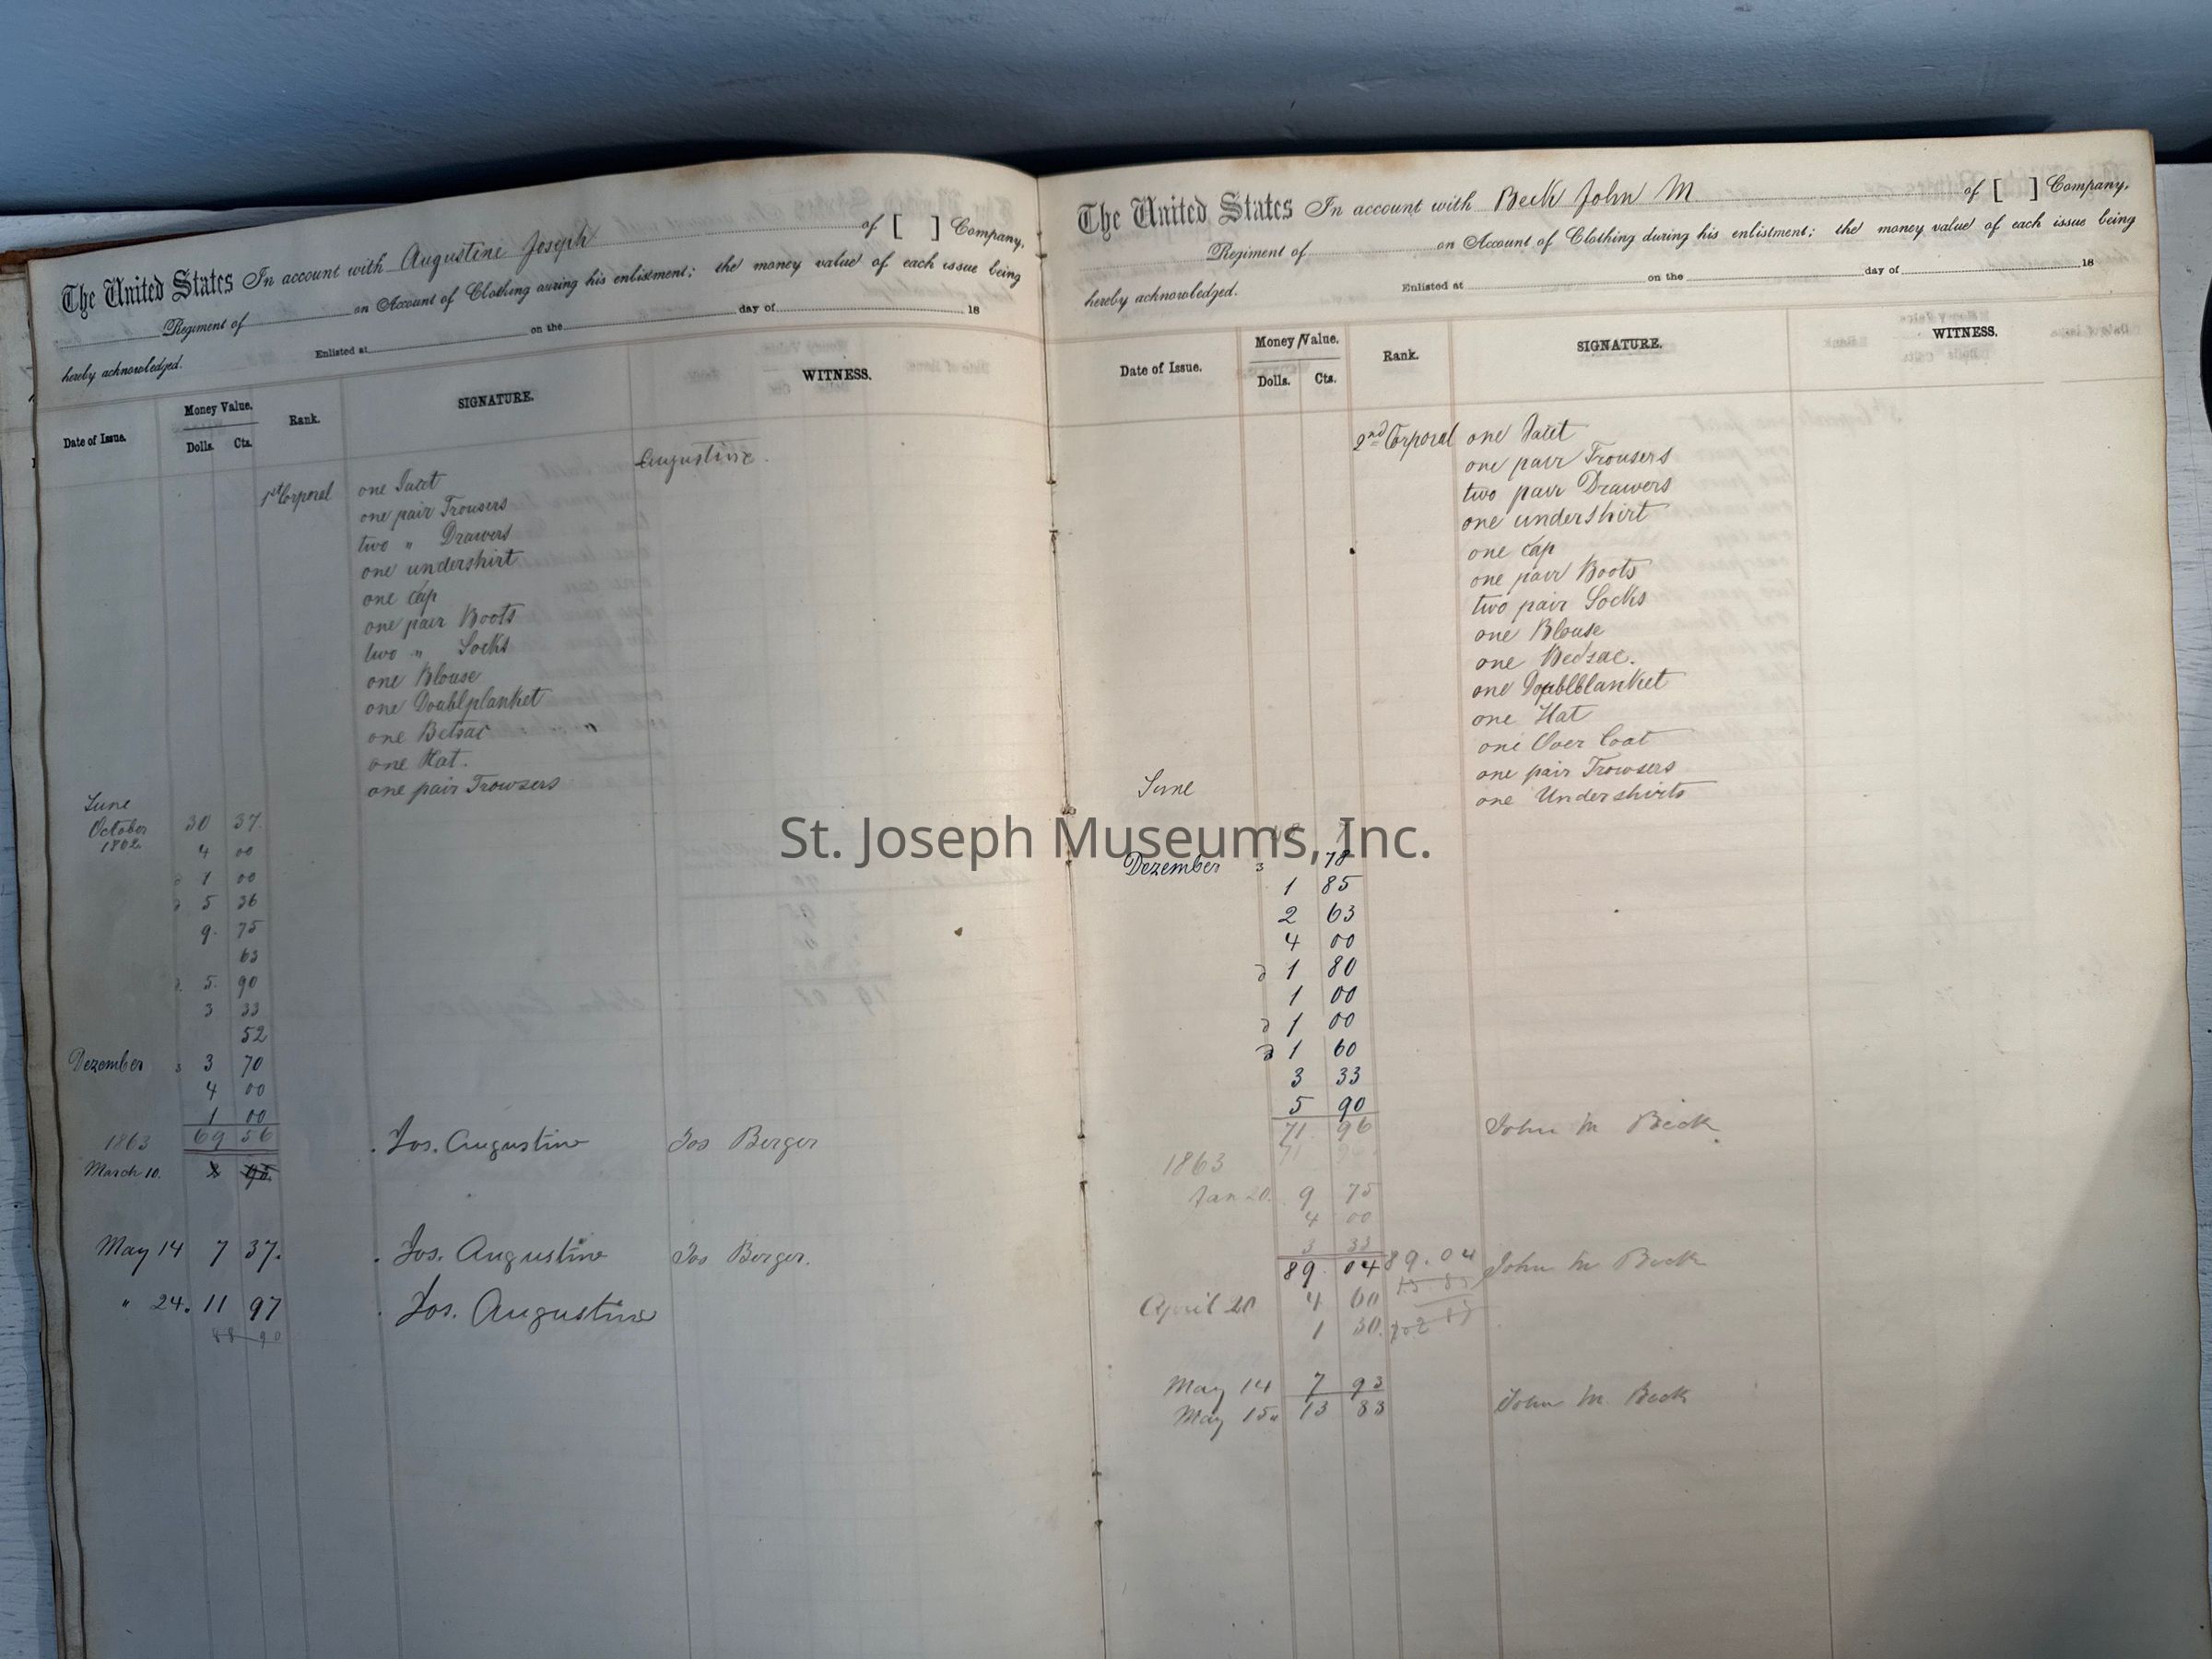 The United States In account with Augustine Joseph of [ ] Company,
Regiment of on Account of Clothing during his enlistment; the money value of each issue being
hereby acknowledged. Enlisted at on the day of 18
Date of Issue. Money Value. Dolls. Cts. Rank. SIGNATURE. WITNESS.
Augustine.
1st Corporal one Jaict
one pair Trousers
two " Drawers
one undershirt
one cap
one pair Boots
two " Socks
one Blouse
one Doublplanket
one Betsac "
one Hat.
one pair Trowsers
June
October 30 37.
1862 4 00
1 00
5 36
9. 75
63
5. 90
3 33
52
Dezember 3 3 70
4 00
1 00
1863 69 56 Jos. Augustine Jos Berger
March 10.
May 14 7 37. Jos. Augustine Jos Berger.
" 24. 11 97 Jos. Augustine
88 90
The United States In account with Beck John M of [ ] Company,
Regiment of on Account of Clothing during his enlistment; the money value of each issue being
hereby acknowledged. Enlisted at on the day of 18
Date of Issue. Money Value. Dolls. Cts. Rank. SIGNATURE. WITNESS.
2nd Corporal one Jaict
one pair Trousers
two pair Drawers
one undershirt
one cap
one pair Boots
two pair Socks
one Blouse
one Bedsac.
one Doublblanket
one Hat
one Over Coat
one pair Trowsers
June one Undershirts
Dezember 3 78
1 85
2 63
4 00
1 80
1 00
1 00
1 60
3 33
5 90
71 96 John M Beck
1863
Jan 20. 9 75
4 00
3 33
89 04 89.04 John M Beck
April 20 4 60
1 30.
May 14 7 93
May 15" 13 83 John M. Beck
St. Joseph Museums, Inc.